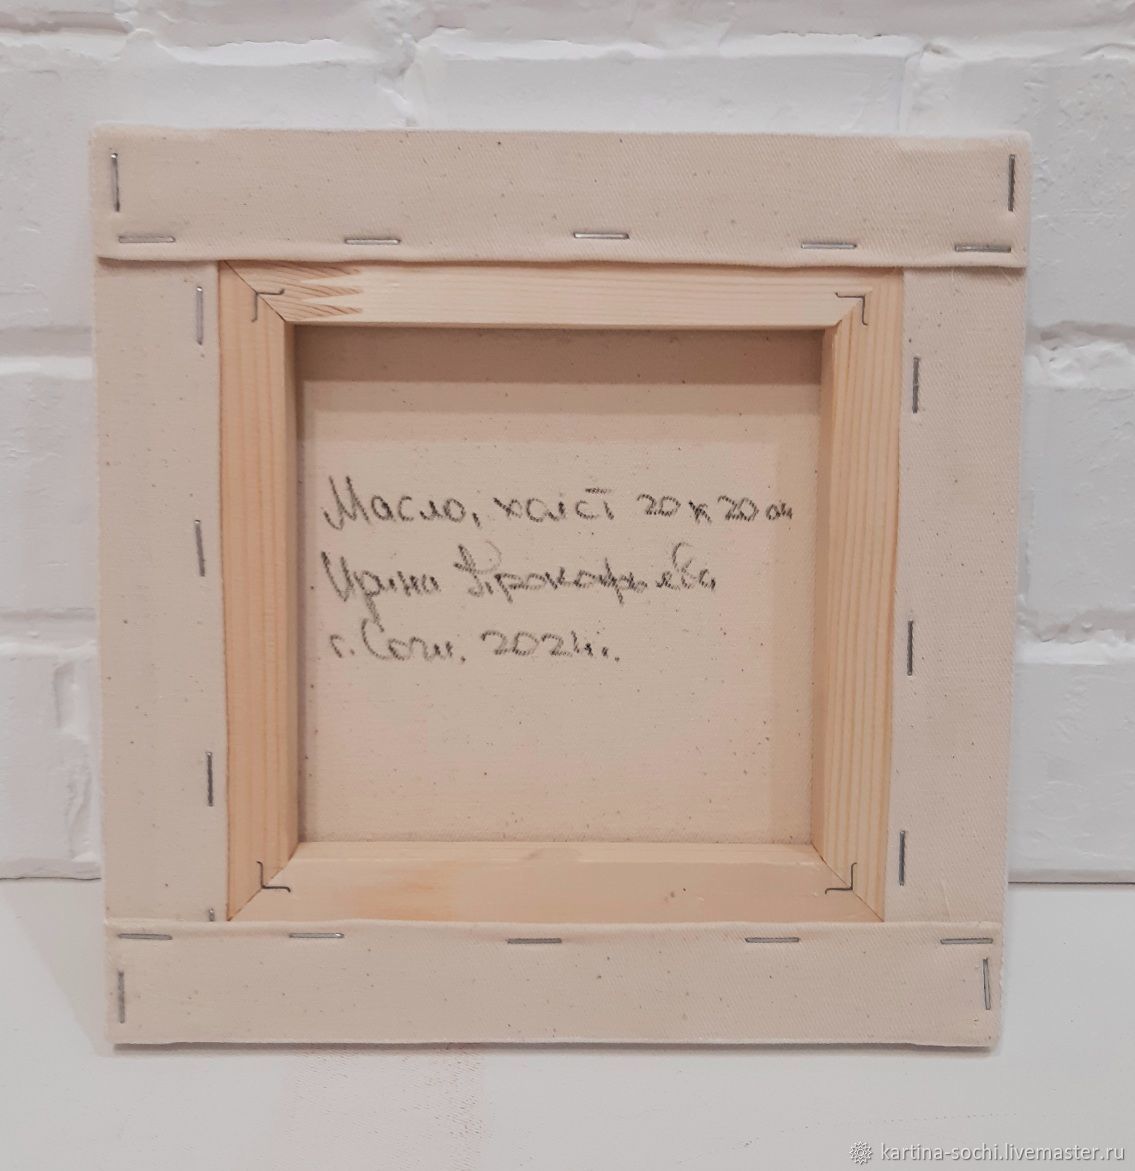 Масло, холст 20х20см
Ирина Прокофьева
г. Сочи. 2024г.
kartina-sochi.livemaster.ru